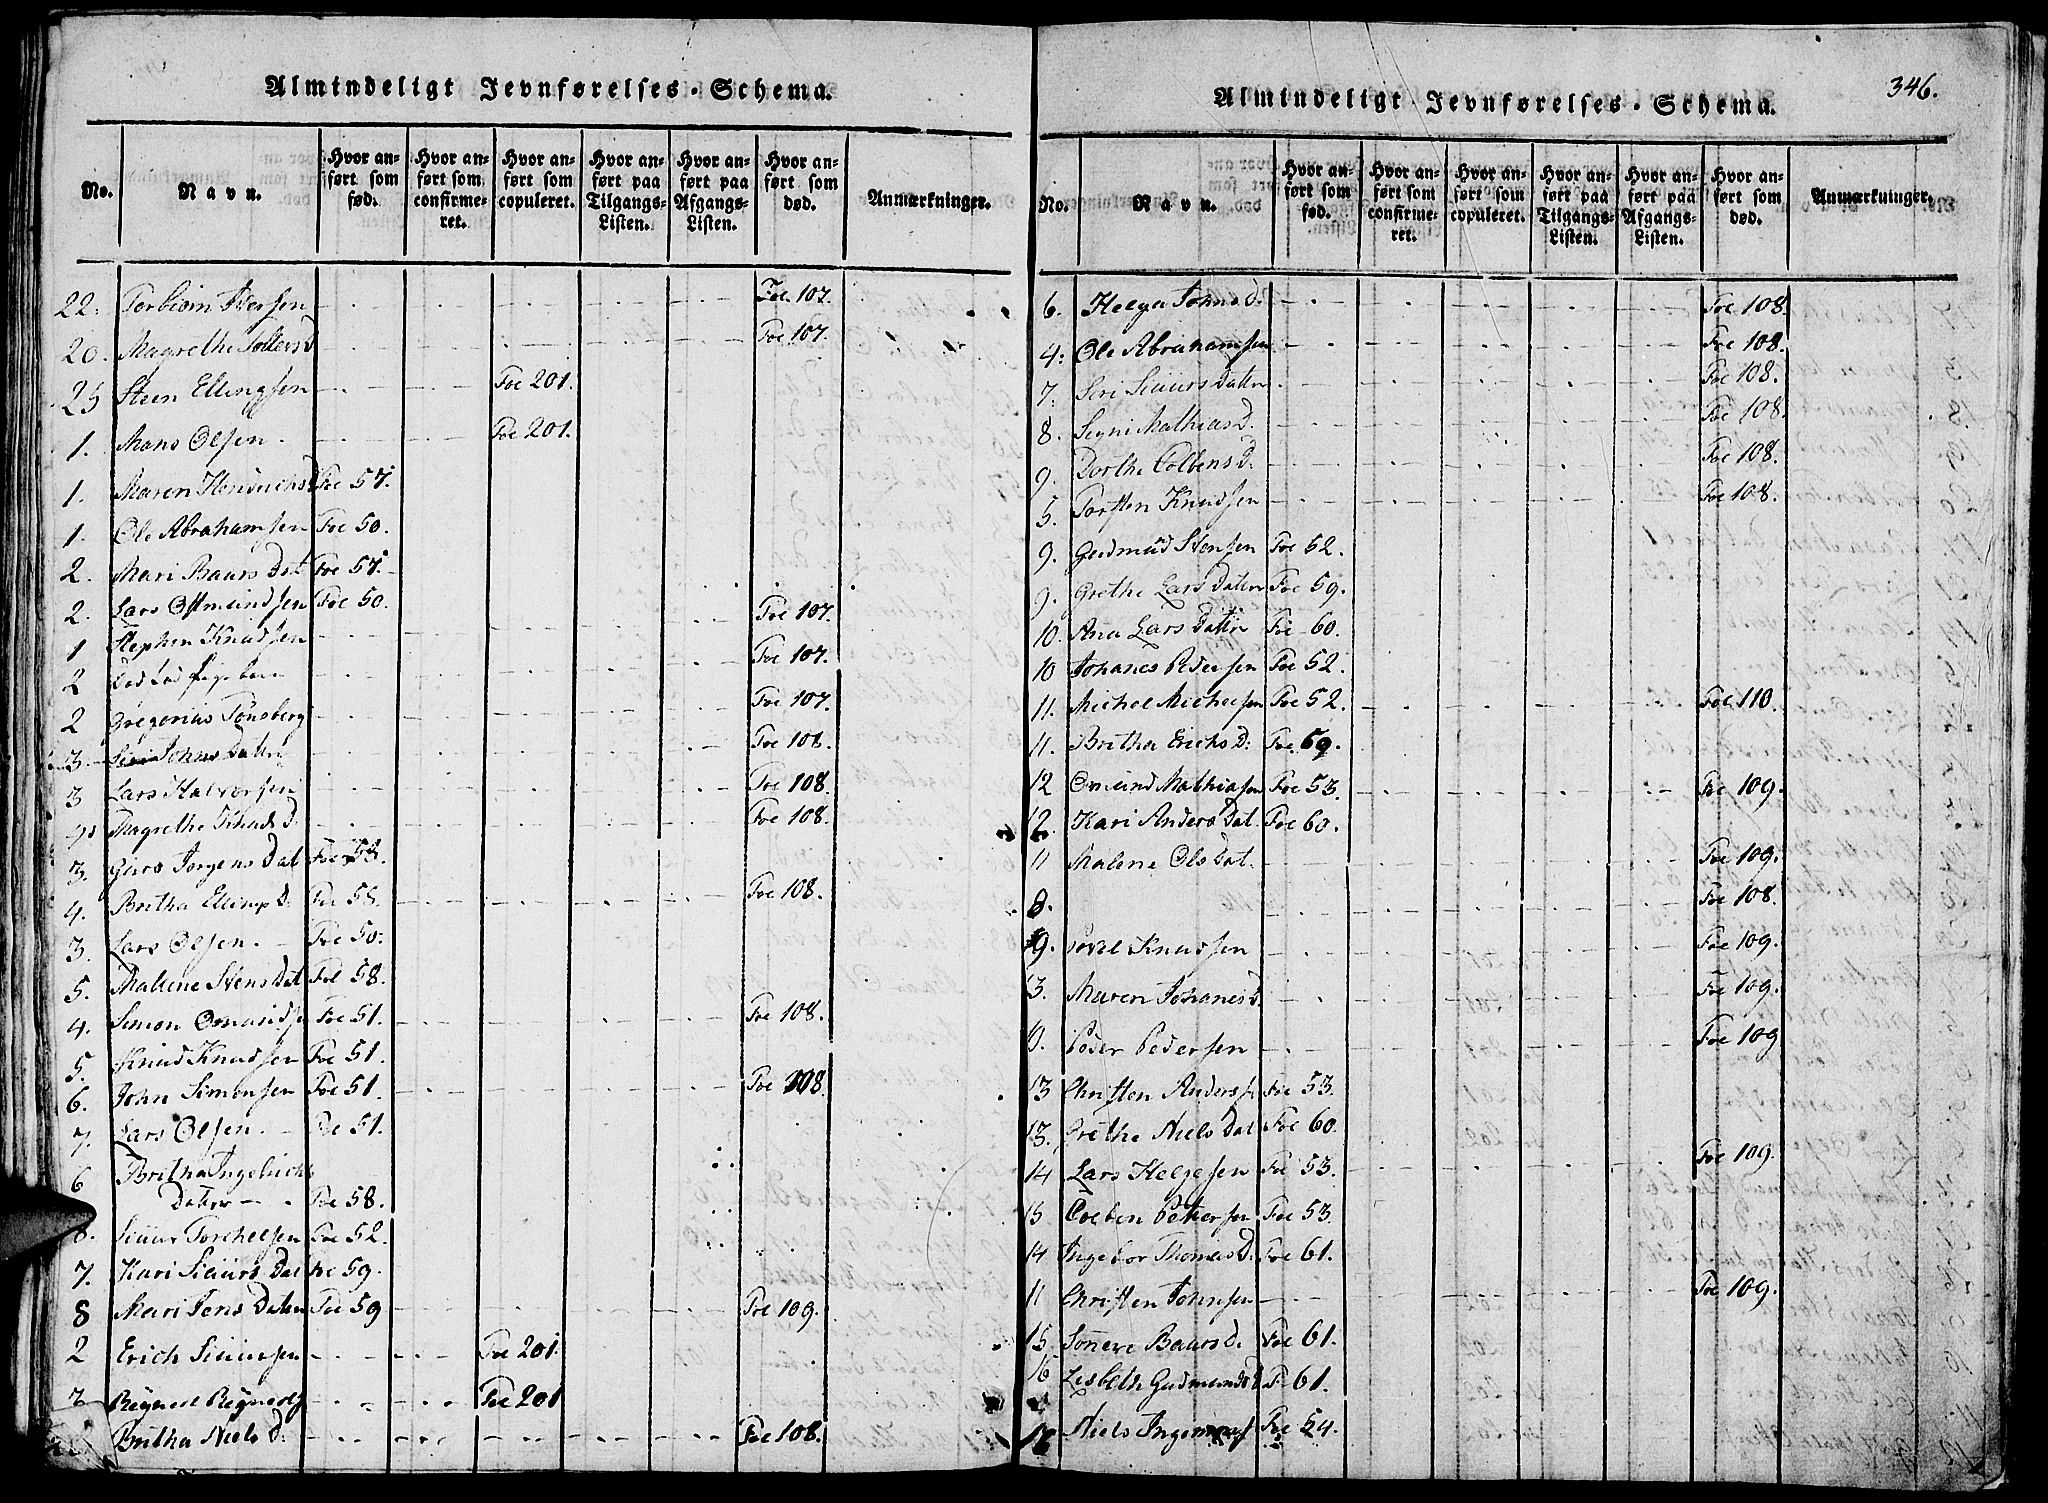 Almindeligt Jevnførelses-Schema.
No. Navn. Hvor anført som fød. Hvor anført som confirmeret. Hvor anført som copuleret. Hvor anført paa Tilgangs-Listen. Hvor anført paa Afgangs-Listen. Hvor anført som død. Anmærkninger.
22. Torbiörn Iversen Foe. 107.
20. Magrethe Tollersd Foe 107.
25 Steen Ellingsen Foe 201.
1. Mans Olsen Foe 201.
1. Maren Hendrichsd Foe 57.
1. Ole Abrahamsen Foe 50.
2. Mari Baurs Dat Foe 57.
2. Lars Ostmundsen Foe 50.
1 Stephen Knudsen Foe 107.
2 Foe 107.
2 Gregorius Tonsberg Foe 107.
3 Siri Johns Datter Foe 108.
3 Lars Halvorsen Foe 108.
Magrethe Knuds D. Foe 108.
3. Guro Jorgens Dat Foe 58.
4. Britha Ellings D. Foe 58. Foe 108.
3. Lars Olsen. Foe 50.
5. Malene Stens Dat Foe 58.
4. Simon Omunds Foe 51. Foe 108.
5. Knud Knudsen Foe 51.
6. John Simonsen Foe 51. Foe 108.
7. Lars Olsen. Foe 51.
6 Britha Ingebrichts
Datter Foe 58.
8. Siuur Torchelsen Foe 52.
7. Kari Siuurs Dat Foe 59.
8 Mari Jens Daten Foe 59 Foe 109.
2 Erich Siuursen Foe 201.
Reyner Reyners Foe 201
Britha Niels D. Foe 108.
346.
Almindeligt Jevnførelses-Schema.
No. Navn. Hvor anført som fød. Hvor anført som confirmeret. Hvor anført som copuleret. Hvor anført paa Tilgangs-Listen. Hvor anført paa Afgangs-Listen. Hvor anført som død. Anmærkninger.
6. Helga Johnsd. Foe 108.
4. Ole Abrahamsen Foe 108.
7. Seri Siuurs Datter Foe 108.
8. Signi Mathias D. Foe 108.
9. Dorthe Colbens D. Foe 108.
5. Torsten Knudsen Foe 108.
9. Gudmund Stensen Foe 52.
9. Grethe Lars Datter Foe 59.
10. Ana Lars Datter Foe 60.
10 Johanes Pedersen Foe 52.
11. Michel Michelsen Foe 52. Foe 110.
11. Britha Erichs D. Foe 59.
12 Omund Mathiasen Foe 53. Foe 109.
12. Kari Anders Dat. Foe 60.
11 Malene Ols Dat. Foe 109.
8. Foe 108.
9. Povel Knudsen Foe 109.
13. Maren Johanes d. Foe 109.
Peder Pedersen Foe 109
13 Christen Anders Foe 53.
13. Grethe Niels Dat Foe 60.
14 Lars Helgesen Foe 53. Foe 109.
15 Colben Petersen Foe 53.
14 Ingebor Thomas D. Foe 61.
11 Christen Johnsen Foe 109.
15 Sonneve Baurs d. Foe 61.
16 Lisbeth Gudmundsd F 61.
16 Niels Foe 54.